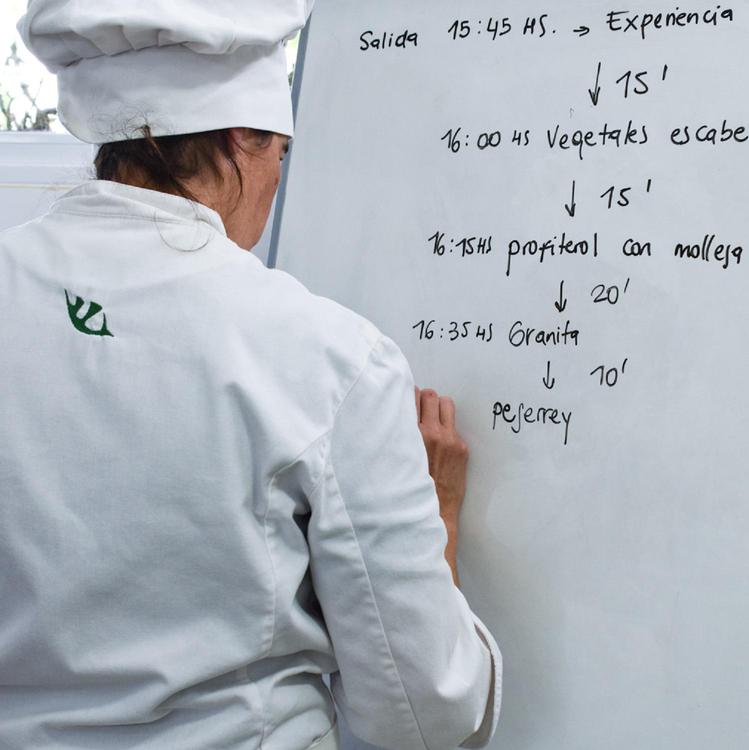 Salida 15:45 HS. → Experiencia
↓ 15'
16:00 HS Vegetales escabe
↓ 15'
16:15 HS profiterol con molleja
↓ 20'
16:35 HS Granita
↓ 10'
pejerrey